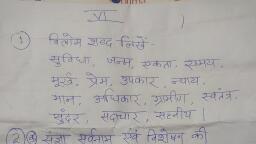 VI
① विलोम शब्द लिखें-
सुविधा, जन्म, एकता, सभ्य,
मूर्ख, प्रेम, उपकार, न्याय,
मान, अधिकार, ग्रामीण, स्वतंत्र,
सुंदर, सदाचार, सहनीय।
② संज्ञा सर्वनाम एवं विशेषण की